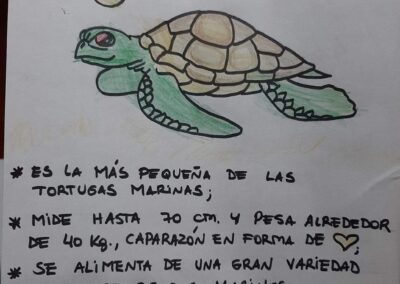 * ES LA MÁS PEQUEÑA DE LAS
TORTUGAS MARINAS;
* MIDE HASTA 70 CM. Y PESA ALREDEDOR
DE 40 Kg., CAPARAZÓN EN FORMA DE 💛;
* SE ALIMENTA DE UNA GRAN VARIEDAD